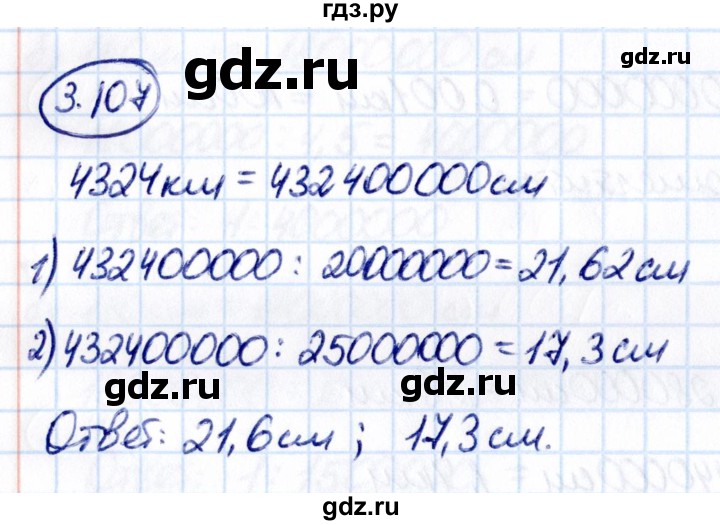 гдз.ру
gdz.ru
3.107
4324км = 432400000см
1) 432400000 : 20000000 = 21,62см
2) 432400000 : 25000000 = 17,3см
gdz.ru
gdz.ru
Ответ: 21,6см ; 17,3см.
gdz.ru